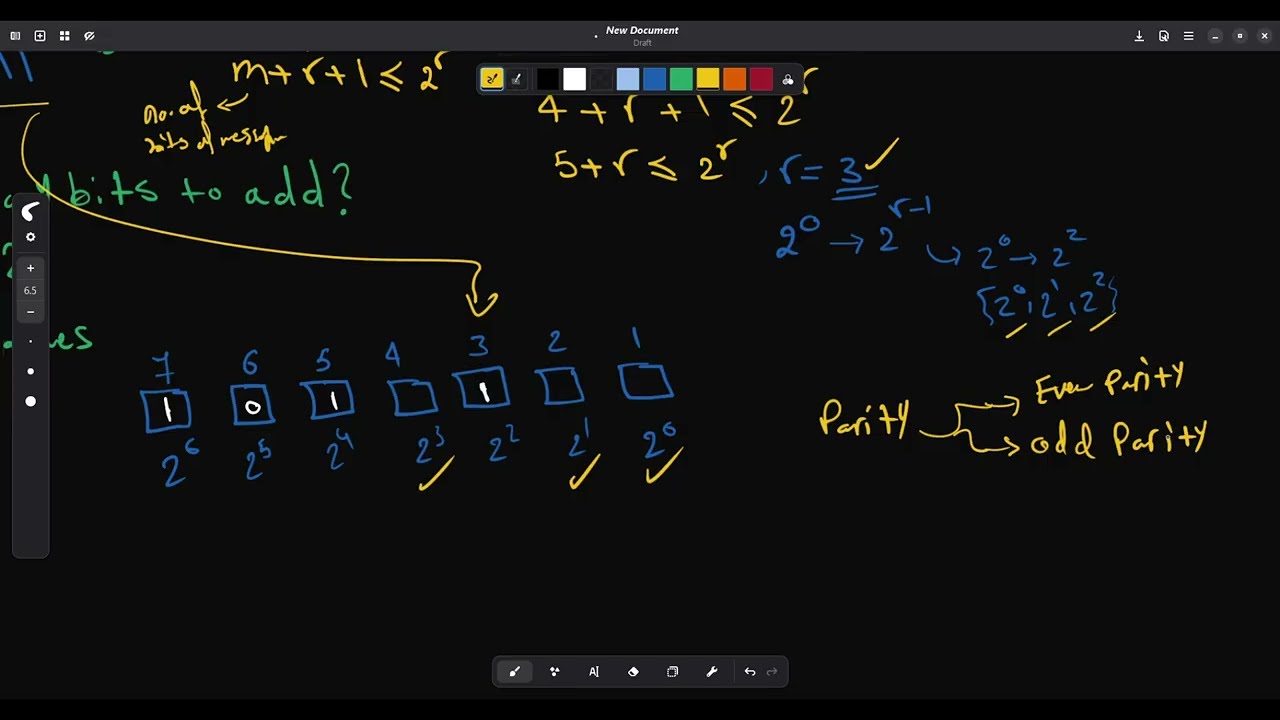 New Document
Draft
m+r+1 ≤ 2^r
no. of
bits of
4 + r + 1 ≤ 2^r
5+r ≤ 2^r , r = 3
bits to add?
2^0 → 2^r-1
2^0 → 2^2
{2^0, 2^1, 2^2}
6.5
7 6 5 4 3 2 1
1 0 1 1
2^6 2^5 2^4 2^3 2^2 2^1 2^0
Parity
Even Parity
odd Parity